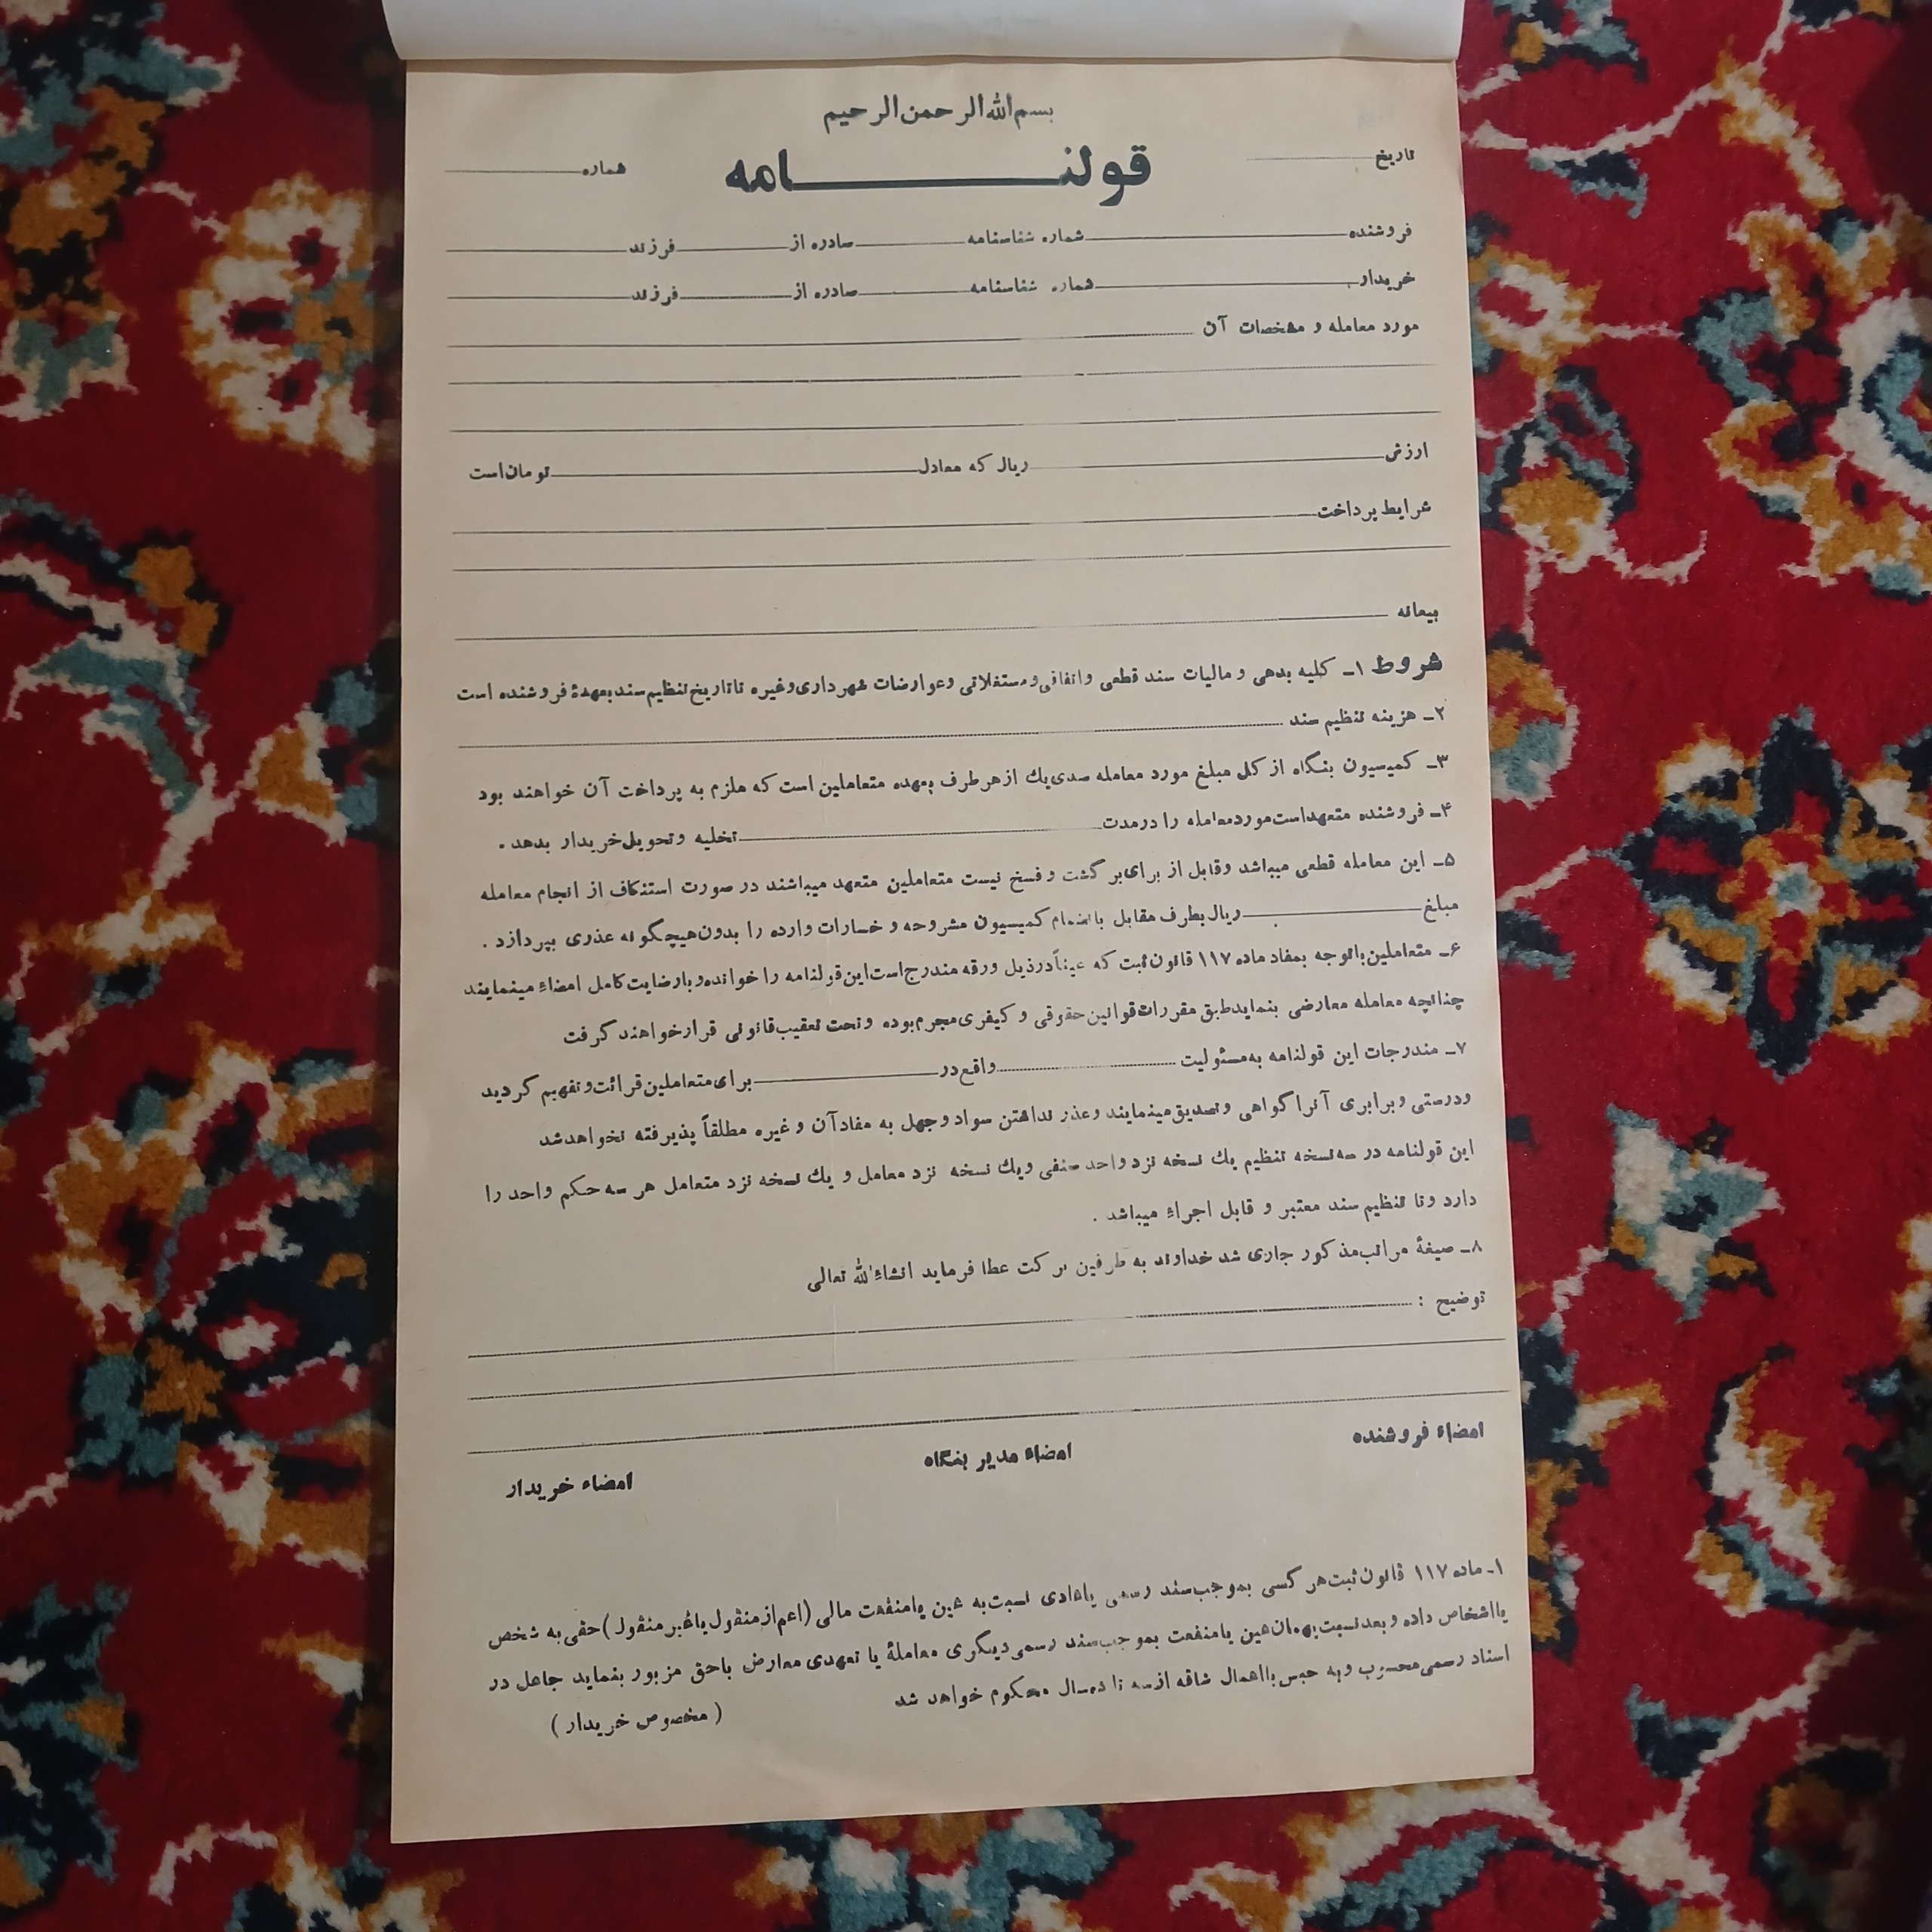 بسم الله الرحمن الرحیم
تاریخ قولنـــــامه شماره
فروشنده شماره شناسنامه صادره از فرزند
خریدار شماره شناسنامه صادره از فرزند
مورد معامله و مشخصات آن
ارزش ریال که معادل تومان است
شرایط پرداخت
بیعانه
شروط ۱ـ کلیه بدهی و مالیات سند قطعی و اتفاقی و مستغلاتی و عوارضات شهرداری و غیره تا تاریخ تنظیم سند بعهدهٔ فروشنده است
۲ـ هزینه تنظیم سند
۳ـ کمیسیون بنگاه از کل مبلغ مورد معامله صدی یک از هر طرف بعهده متعاملین است که ملزم به پرداخت آن خواهند بود
۴ـ فروشنده متعهد است مورد معامله را در مدت تخلیه و تحویل خریدار بدهد .
۵ـ این معامله قطعی میباشد و قابل از برای برگشت و فسخ نیست متعاملین متعهد میباشند در صورت استنکاف از انجام معامله
مبلغ ریال بطرف مقابل باانضمام کمیسیون مشروحه و خسارات وارده را بدون هیچگونه عذری بپردازد .
۶ـ متعاملین باتوجه بمفاد ماده ۱۱۷ قانون ثبت که عیناً در ذیل ورقه مندرج است این قولنامه را خوانده و بارضایت کامل امضاء مینمایند
چنانچه معامله معارضی بنماید طبق مقررات قوانین حقوقی و کیفری مجرم بوده و تحت تعقیب قانونی قرار خواهند گرفت
۷ـ مندرجات این قولنامه به مسئولیت واقع در برای متعاملین قرائت و تفهیم گردید
و درستی و برابری آنرا گواهی و تصدیق مینمایند و عذر نداشتن سواد و جهل به مفاد آن و غیره مطلقاً پذیرفته نخواهد شد
این قولنامه در سه نسخه تنظیم یک نسخه نزد واحد صنفی و یک نسخه نزد معامل و یک نسخه نزد متعامل هر سه حکم واحد را
دارد و تا تنظیم سند معتبر و قابل اجراء میباشد .
۸ـ صیغهٔ مراتب مذکور جاری شد خداوند به طرفین برکت عطا فرماید انشاءالله تعالی
توضیح :
امضاء فروشنده امضاء مدیر بنگاه امضاء خریدار
۱ـ ماده ۱۱۷ قانون ثبت هر کسی بموجب سند رسمی یا عادی نسبت به عین یا منفعت مالی (اعم از منقول یا غیر منقول) حقی به شخص
یا اشخاص داده و بعد نسبت بهمان عین یا منفعت بموجب سند رسمی دیگری معاملهٔ یا تعهدی معارض با حق مزبور بنماید جاعل در
اسناد رسمی محسوب و به حبس با اعمال شاقه از سه تا ده سال محکوم خواهد شد
( مخصوص خریدار )